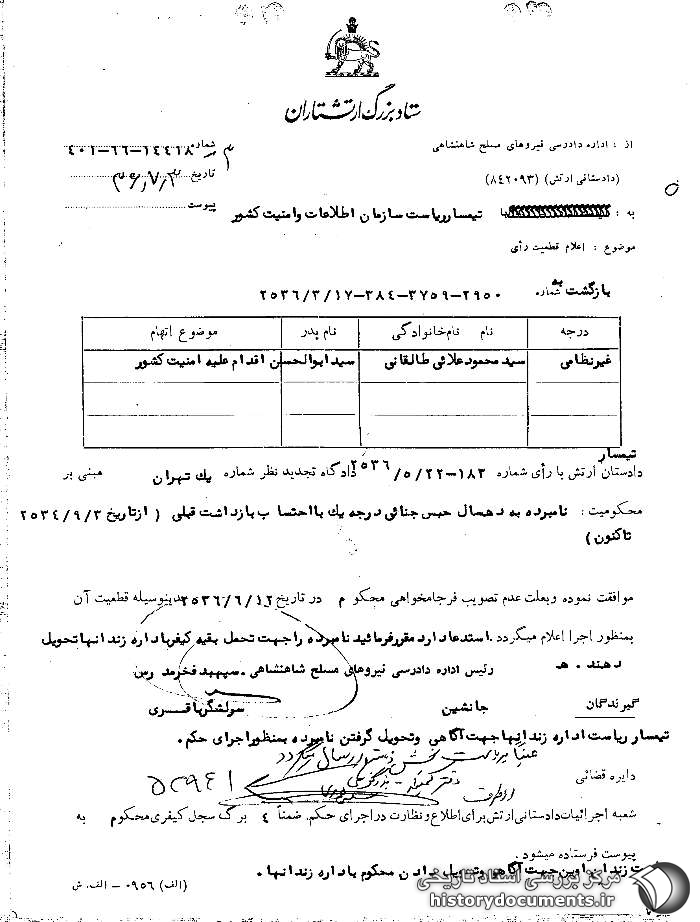 ستاد بزرگ ارتشتاران
از : اداره دادرسی نیروهای مسلح شاهنشاهی
شماره ۴۰۱-۶۶-۱۴۴۱۸
(دادستانی ارتش) (۸۴۲۰۹۳)
تاریخ ۳۶/۷/۲
به : تیمسار ریاست سازمان اطلاعات و امنیت کشور
پیوست
موضوع : اعلام قطعیت رأی
بازگشت به شماره ۲۹۰۰-۳۷۵۹-۳۸۴-۲۵۳۶/۳/۱۷
درجه نام نام‌خانوادگی نام پدر موضوع اتهام
غیرنظامی سید محمود علائی طالقانی سید ابوالحسن اقدام علیه امنیت کشور
تیمسار
دادستان ارتش با رأی شماره ۱۸۳-۲۵۳۶/۵/۲۲ دادگاه تجدید نظر شماره یک تهران مبنی بر
محکومیت : نامبرده به ده‌سال حبس جنائی درجه یک با احتساب بازداشت قبلی ( از تاریخ ۲۵۳۴/۹/۳
تاکنون )
موافقت نموده و بعلت عدم تصویب فرجامخواهی محکوم م در تاریخ ۲۵۳۶/۶/۱۲ بدینوسیله قطعیت آن
بمنظور اجرا اعلام میگردد . استدعا دارد مقرر فرمائید نامبرده را جهت تحمل بقیه کیفر باداره زندانها تحویل
دهند . هـ
رئیس اداره دادرسی نیروهای مسلح شاهنشاهی . سپهبد فخر مدرس
گیرندگان
جانشین سرلشگر باقسری
تیمسار ریاست اداره زندانها جهت آگاهی و تحویل گرفتن نامبرده بمنظور اجرای حکم .
دایره قضائی
شعبه اجرائیات دادستانی ارتش برای اطلاع و نظارت در اجرای حکم . ضمناً ۴ برگ سجل کیفری محکوم به
پیوست فرستاده میشود .
جهت آگاهی و تحویل دادن محکوم باداره زندانها .
(الف) ۰۹۵۶ - الف. ش
مرکز بررسی اسناد تاریخی
historydocuments.ir